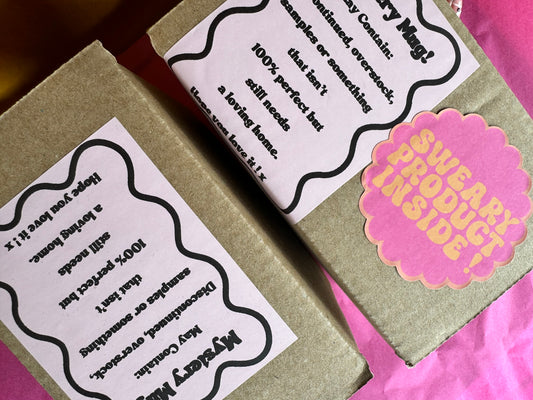 Mug!
May Contain:
overstock,
samples or something
that isn't
100% perfect but
still needs
a loving home.
you love it ! x
SWEARY
PRODUCT
INSIDE!
Mystery
May Contain:
Discontinued, overstock,
samples or something
that isn't
100% perfect but
still needs
a loving home.
Hope you love it ! x